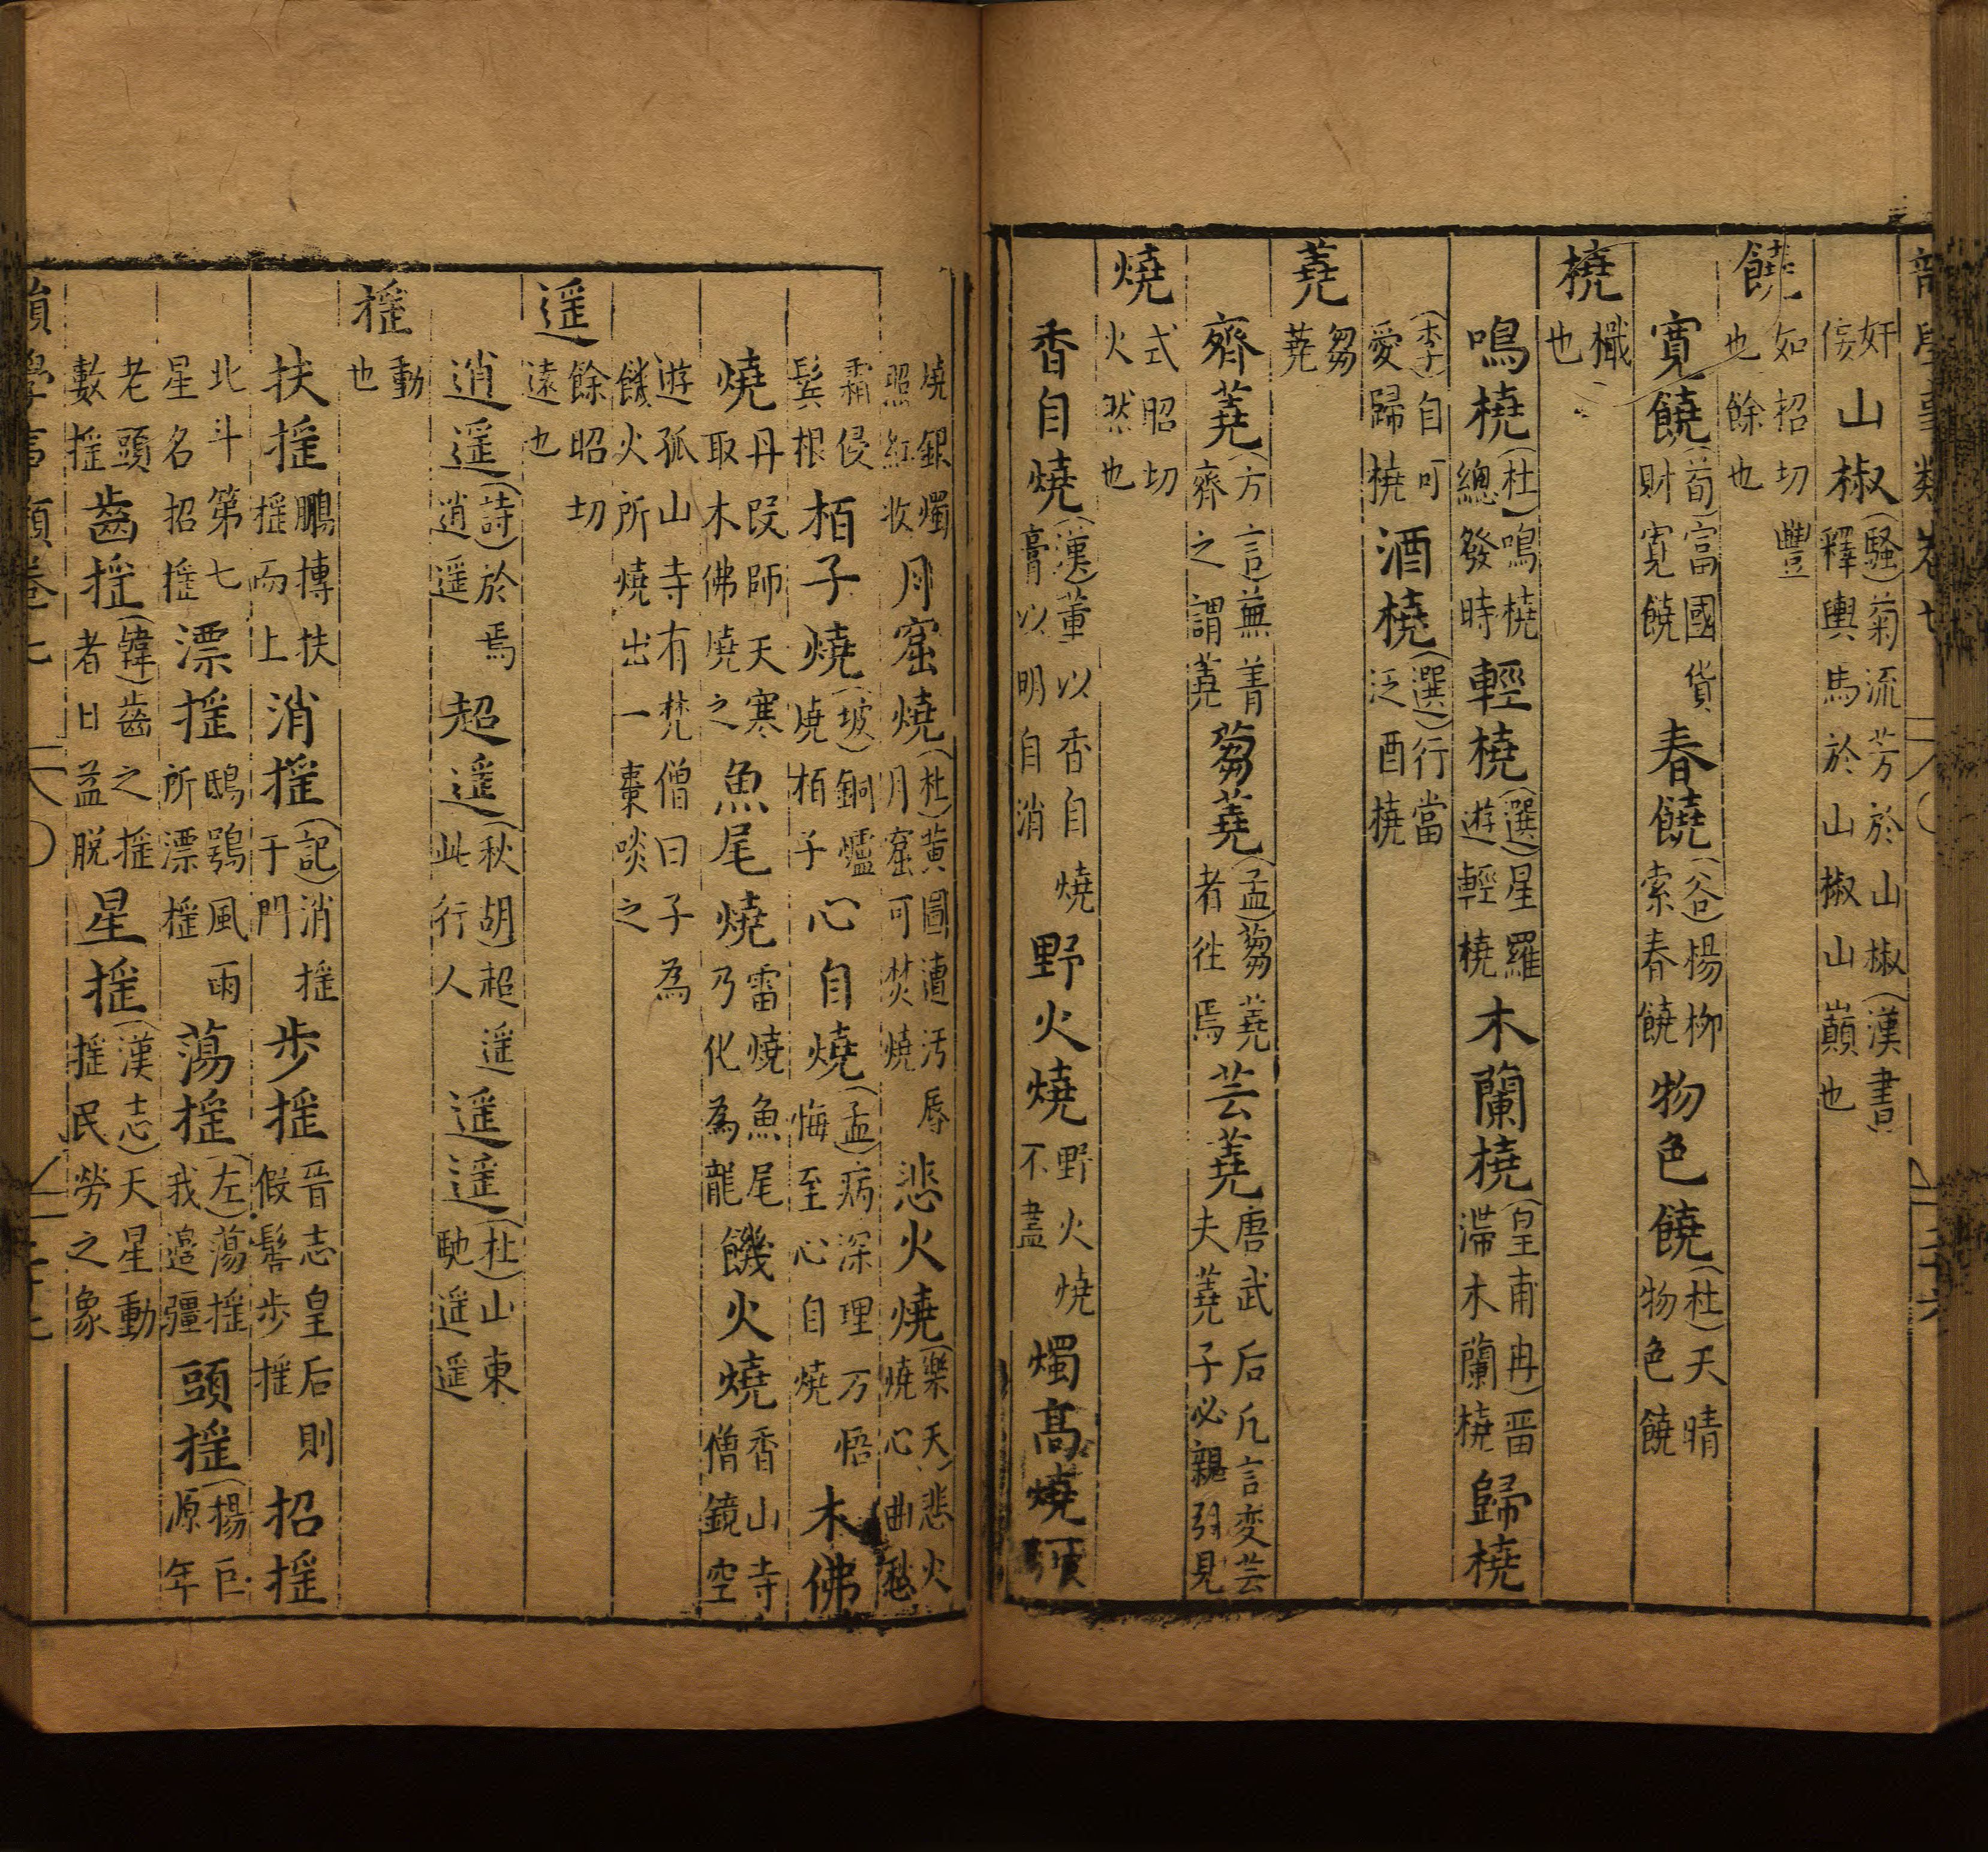 韻學事類卷七
奸傍山椒(騷)菊流芳於山椒(漢書)釋輿馬於山椒山巔也
饒如招切豐也餘也
寛饒(荀)富國貨財寛饒春饒(谷)楊柳索春饒物色饒(杜)天晴物色饒
橈檝也
鳴橈(杜)鳴橈總發時輕橈(選)星羅遊輕橈木蘭橈(皇甫冉)晋滯木蘭橈歸橈
(李)自可愛歸橈酒橈(選)行當泛酉橈
蕘芻蕘
齊蕘(方言)蕪菁齊之謂蕘芻蕘(孟)蒭蕘者徃焉芸蕘唐武后凢言变芸夫蕘子必親引見
燒式昭切火然也
香自燒(漢)董以香自燒膏以明自消野火燒野火燒不盡燭髙燒
燒銀燭照紅妝月窟燒(杜)黄圖遭汚辱月窟可焚燒悲火燒(樂天)悲火燒心曲愁
霜侵鬂根栢子燒(坡)銅爐燒栢子心自燒(孟)病深理万悟悔至心自燒木佛
燒丹叚師天寒取木佛燒之魚尾燒雷燒魚尾乃化為龍饑火燒香山寺僧鏡空
遊孤山寺有梵僧曰子為饑火所燒出一棗啖之
遥餘昭切遠也
逍遥(詩)於焉逍遥超遥(秋胡)超遥此行人遥遥(杜)山東馳遥遥
摇動也
扶摇鵬摶扶摇而上消摇(記)消摇于門步摇晋志皇后則假髻步摇招摇
北斗第七星名招摇漂摇鴟鴞風雨所漂摇蕩摇(左)蕩摇我邉疆頭摇(楊巨源年
老頭數摇齒摇(韓)齒之摇者日益脱星摇(漢志)天星動摇民勞之象
韻學事類卷七